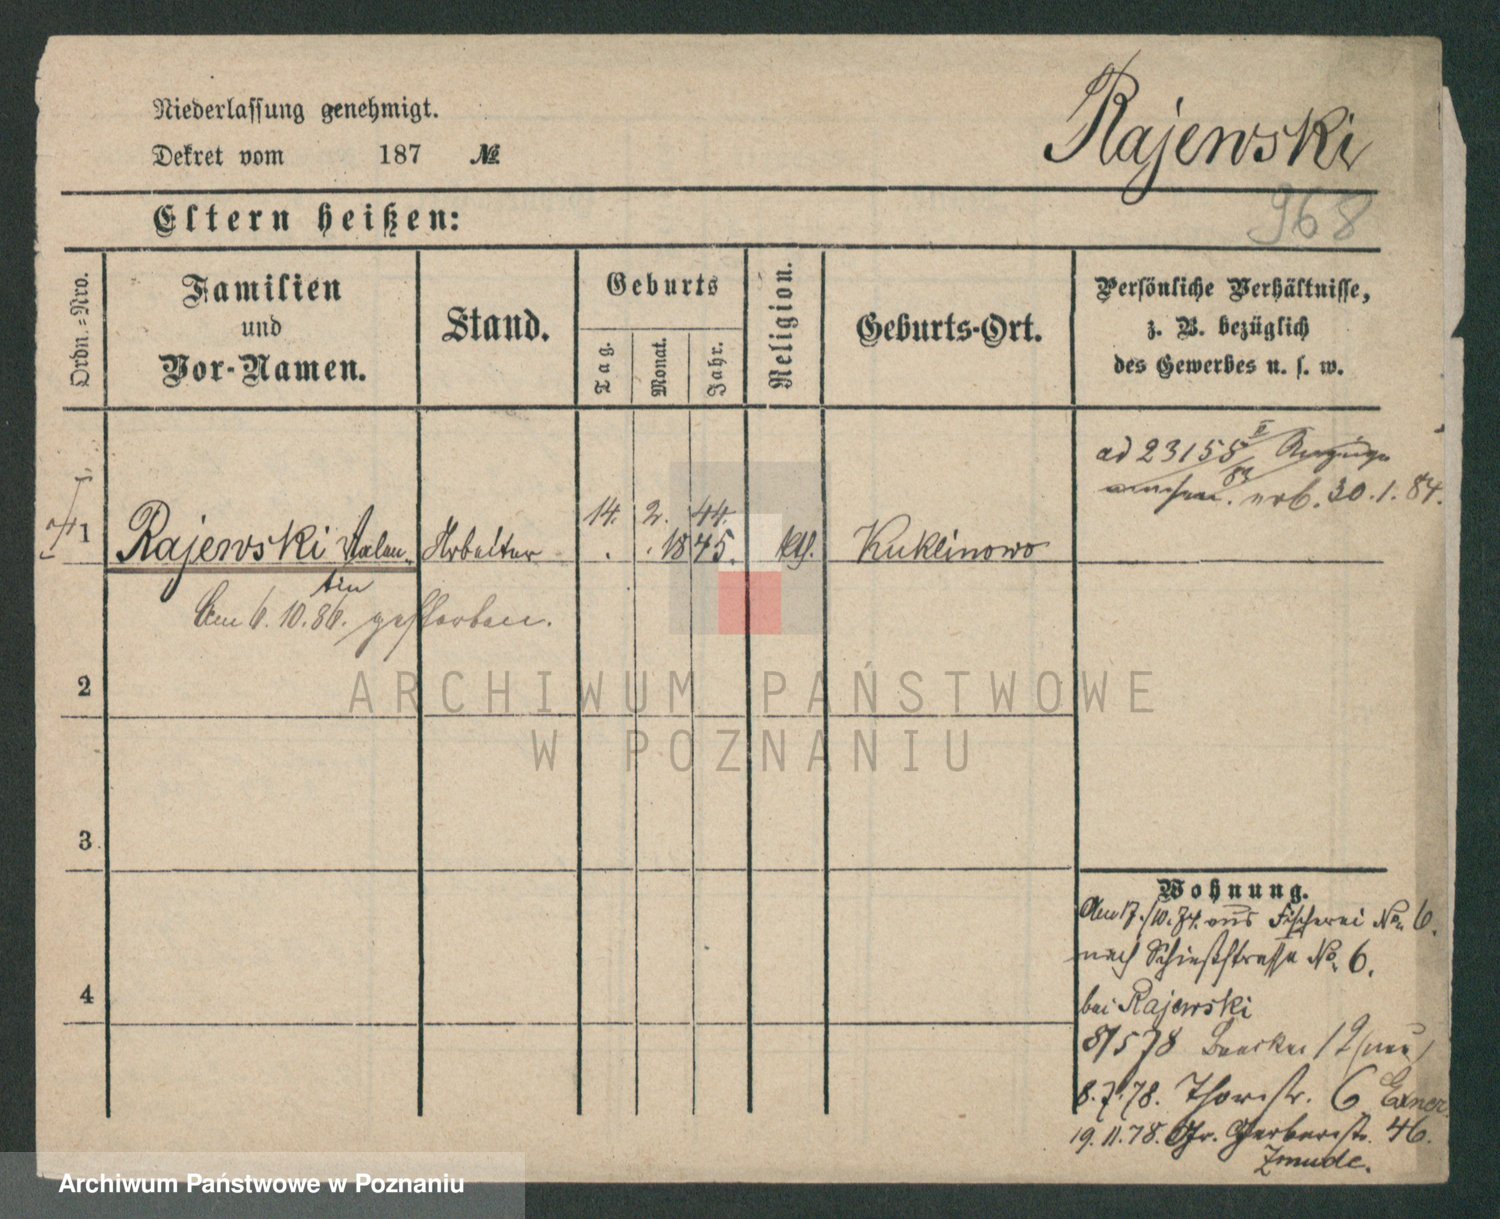 Niederlassung genehmigt.
Dekret vom 187 №
Rajewski
968
Eltern heißen:
Ordn.=Nro.
Familien
und
Vor-Namen.
Stand.
Geburts
Tag.
Monat.
Jahr.
Religion.
Geburts-Ort.
Persönliche Verhältnisse,
z. B. bezüglich
des Gewerbes u. s. w.
ad 23155 II/83
erb. 30.1.84.
14. 2. 44.
1 Rajewski Valen- Arbeiter . . 1845. kth. Kuklinowo
tin
Am 6.10.86. gestorben.
2
3
4
Wohnung.
Am 17./10.74. aus Fischerei No. 6.
nach Schießstrasse No. 6.
bei Rajewski
8/5 78
8.7.78. Thorstr. 6 Exner.
19.11.78. Gr. Gerberstr. 46.
Zmude.
ARCHIWUM PAŃSTWOWE
W POZNANIU
Archiwum Państwowe w Poznaniu